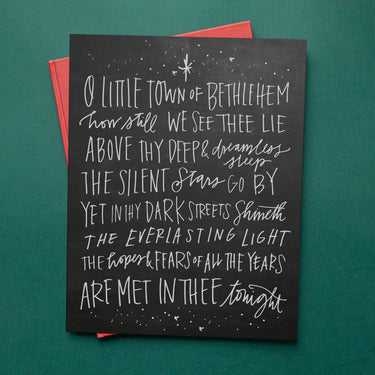 O LITTLE TOWN OF BETHLEHEM
how still WE SEE THEE LIE
ABOVE THY DEEP & dreamless sleep
THE SILENT Stars GO BY
YET IN THY DARK STREETS Shineth
THE EVERLASTING LIGHT
THE hopes & FEARS OF ALL THE YEARS
ARE MET IN THEE tonight